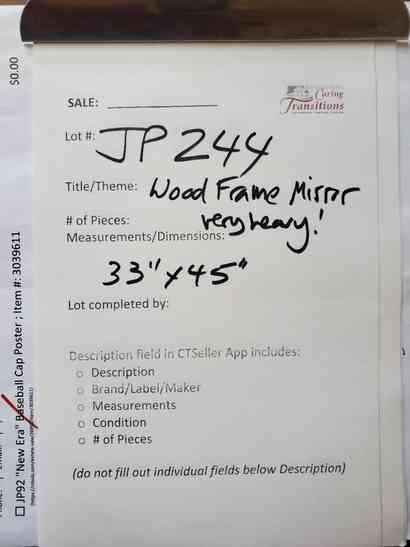 $0.00
SALE: ____________
Caring
Transitions
Lot #: JP 244
Title/Theme: Wood Frame Mirror
very heavy!
# of Pieces:
Measurements/Dimensions:
33" x 45"
Lot completed by:
Description field in CTSeller App includes:
o Description
o Brand/Label/Maker
o Measurements
o Condition
o # of Pieces
(do not fill out individual fields below Description)
JP92 "New Era" Baseball Cap Poster ; Item #: 3039611